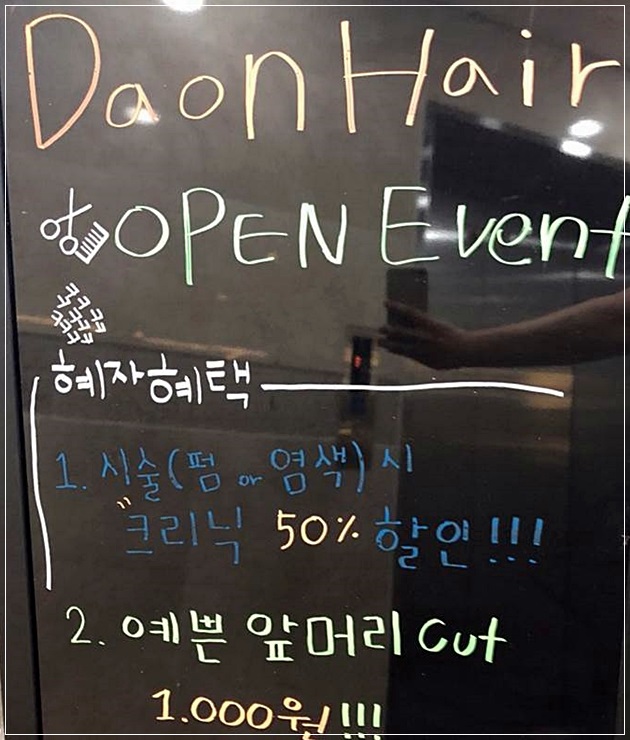 Daon Hair
OPEN Event
혜자혜택
1. 시술(펌 or 염색) 시
크리닉 50% 할인!!!
2. 예쁜 앞머리 Cut
1.000원!!!